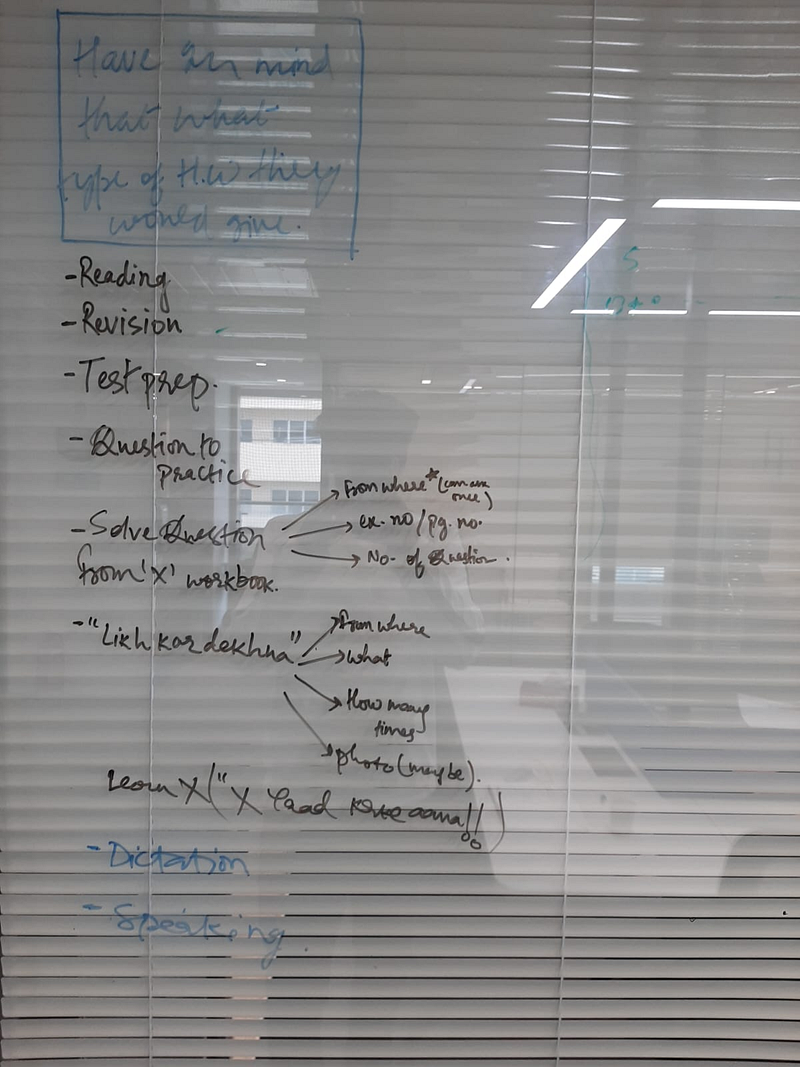 Have in mind
that what
type of H.W they
would give.
- Reading
- Revision
- Test prep.
- Question to
practice
- Solve Question
from 'X' workbook.
From where* (can ask
once)
ex. no / pg. no.
No. of Question.
- "Likh kar dekhna"
From where
what
How many
times
photo (maybe).
Learn X ("X Yaad karke aana!!)
- Dictation
- Speaking.
S